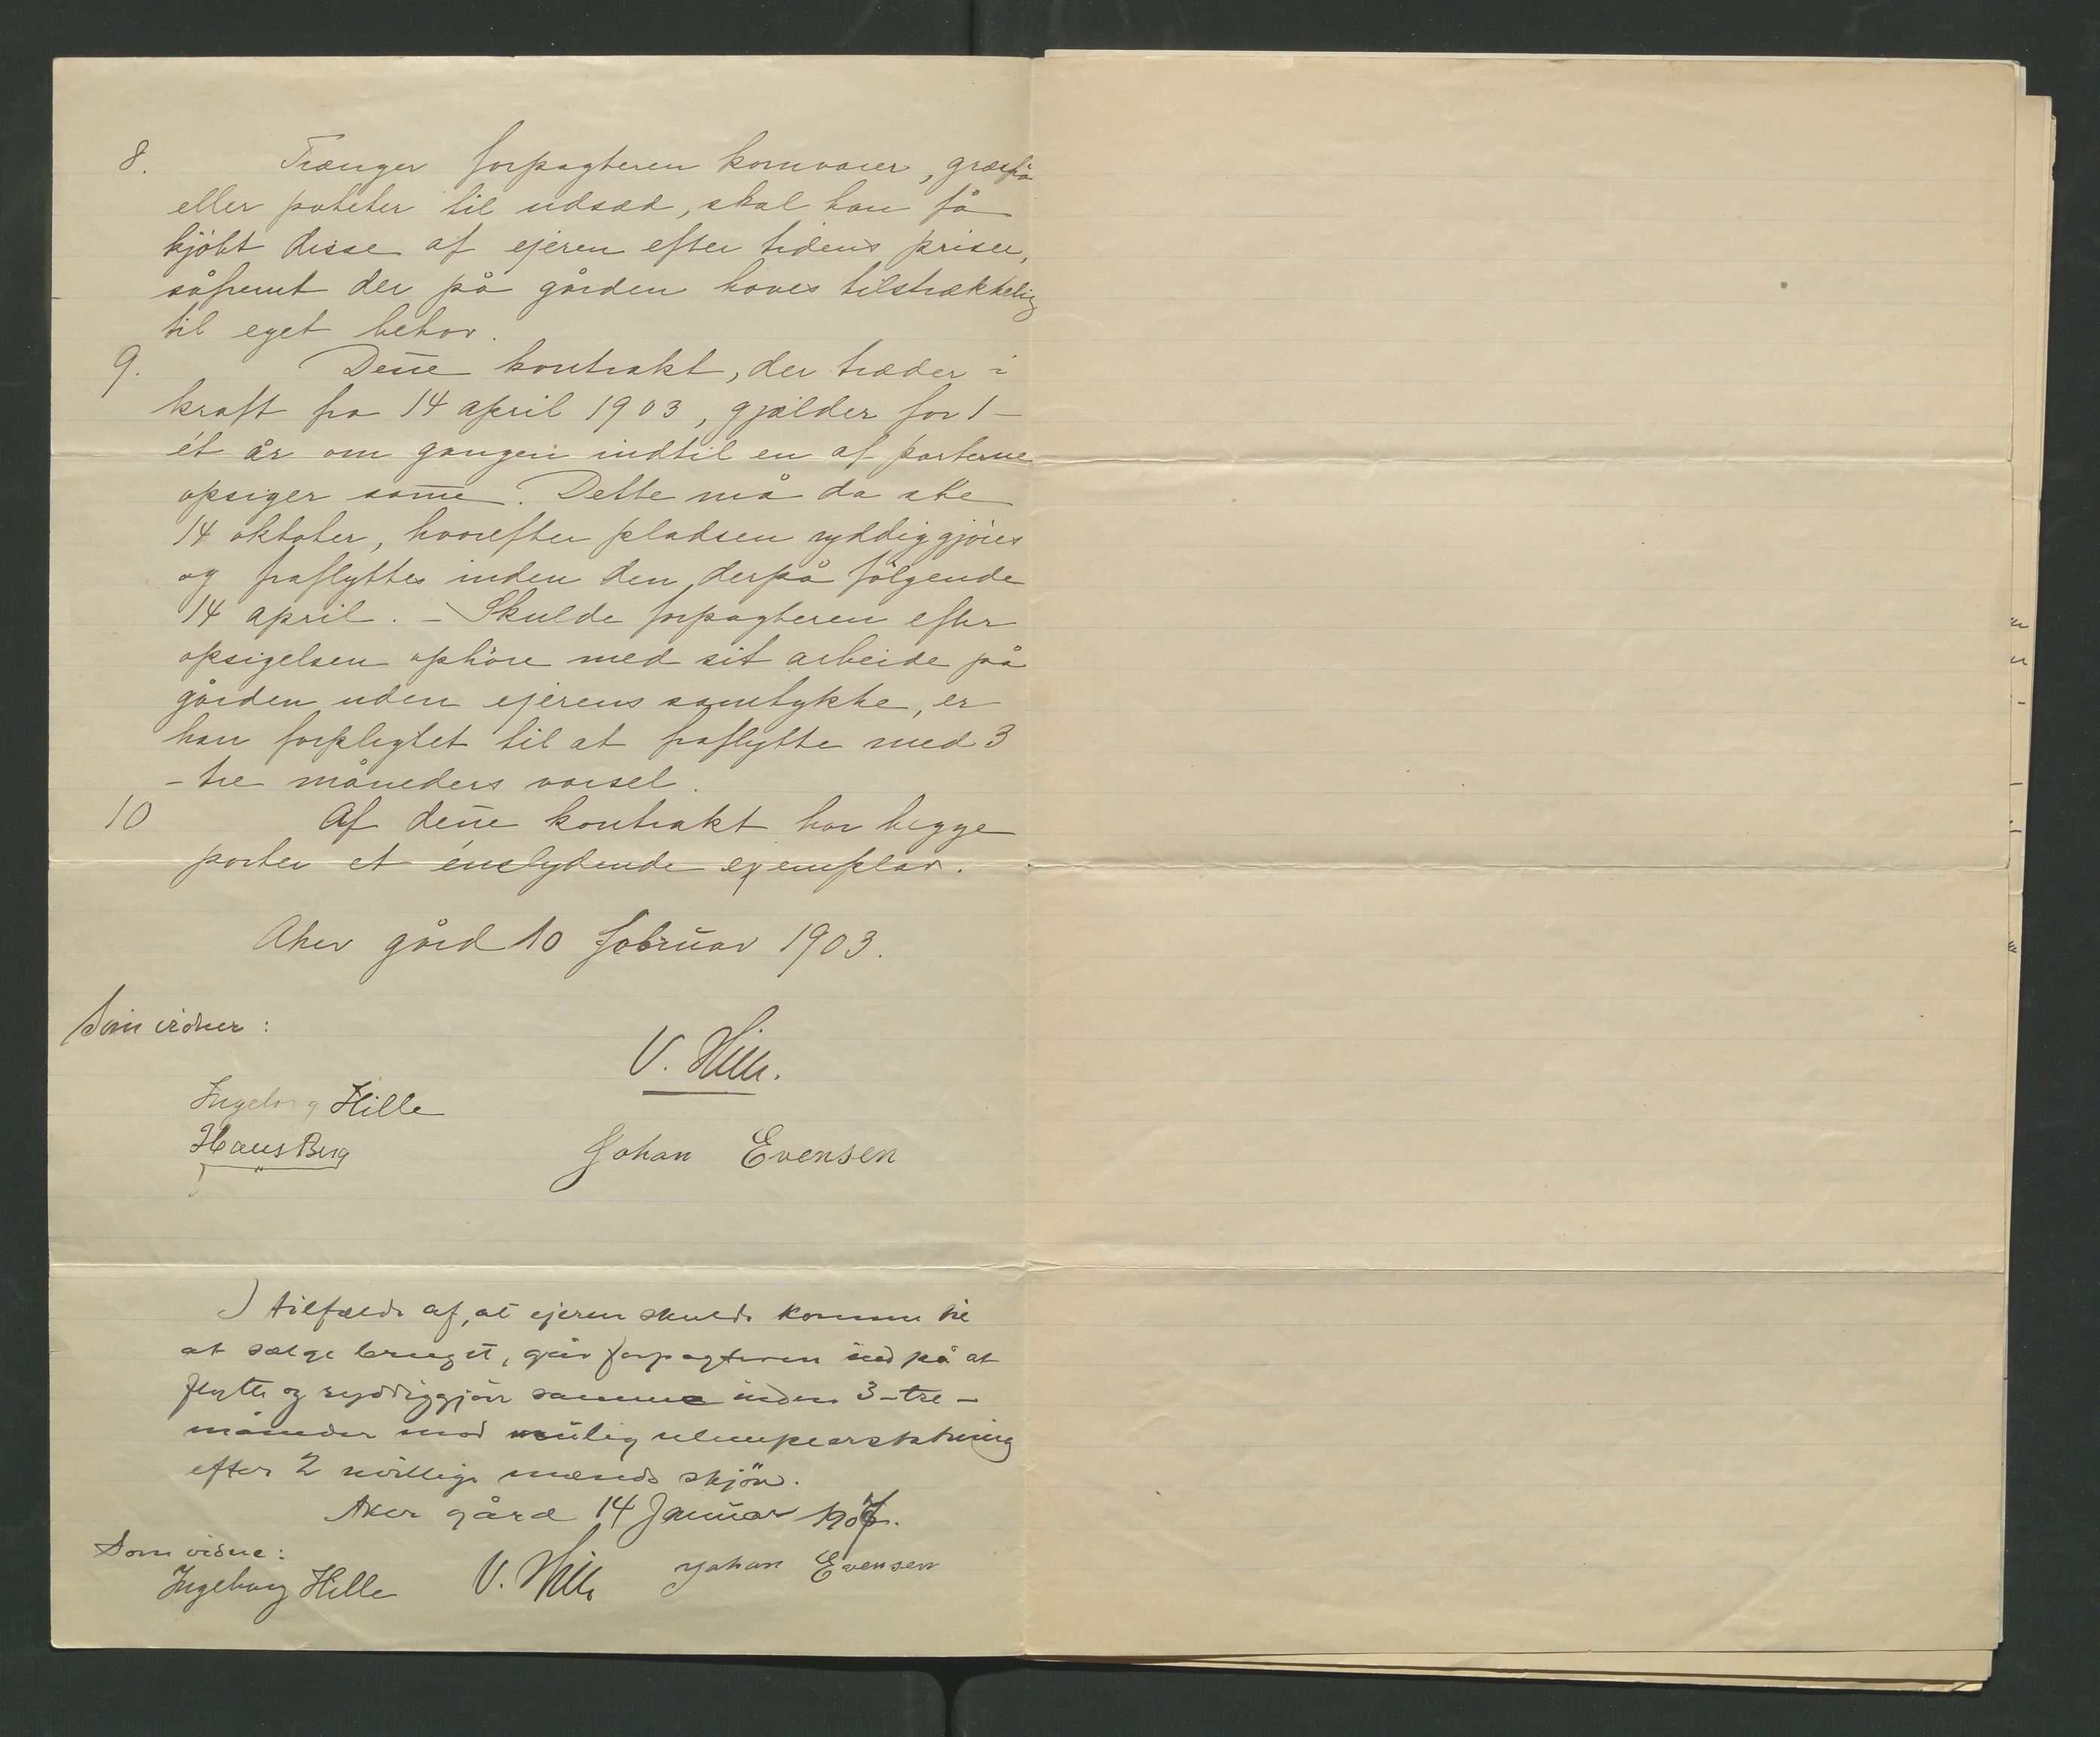 8. Trænger forpagteren kornvarer, græsfrö
eller poteter til udsæd, skal han få
kjöbt disse af ejeren efter tidens priser,
såfremt der på gården haves tilstrækkelig
til eget behov.
9. Den̄e kontrakt, der træder i
kraft fra 14 april 1903, gjælder for 1-
ét år om gangen indtil en af parterne
opsiger sam̄e. Dette må da ske
14 oktober, hvorefter pladsen ryddiggjöres
og fraflyttes inden den derpå fölgende
14 april. - Skulde forpagteren efter
opsigelsen ophöre med sit arbeide på
gården uden ejerens samtykke, er
han forpligtet til at fraflytte med 3
- tre måneders varsel.
10 Af den̄e kontrakt har begge
parter et énslydende exemplar.
Aker gård 10 februar 1903.
Som vidner:
V. Hille.
Ingeborg Hille
Hans Berg
Johan Evensen
I tilfælde af, at ejeren skulde komme til
at sælge bruget, går forpagteren ind på at
flytte og ryddiggjöre samme inden 3-tre-
måneder mod mulig ulempeerstatning
efter 2 uvillige mænds skjön.
Aker gård 14 Januar 1907.
Som vidne:
Ingeborg Hille V. Hille Johan Evensen